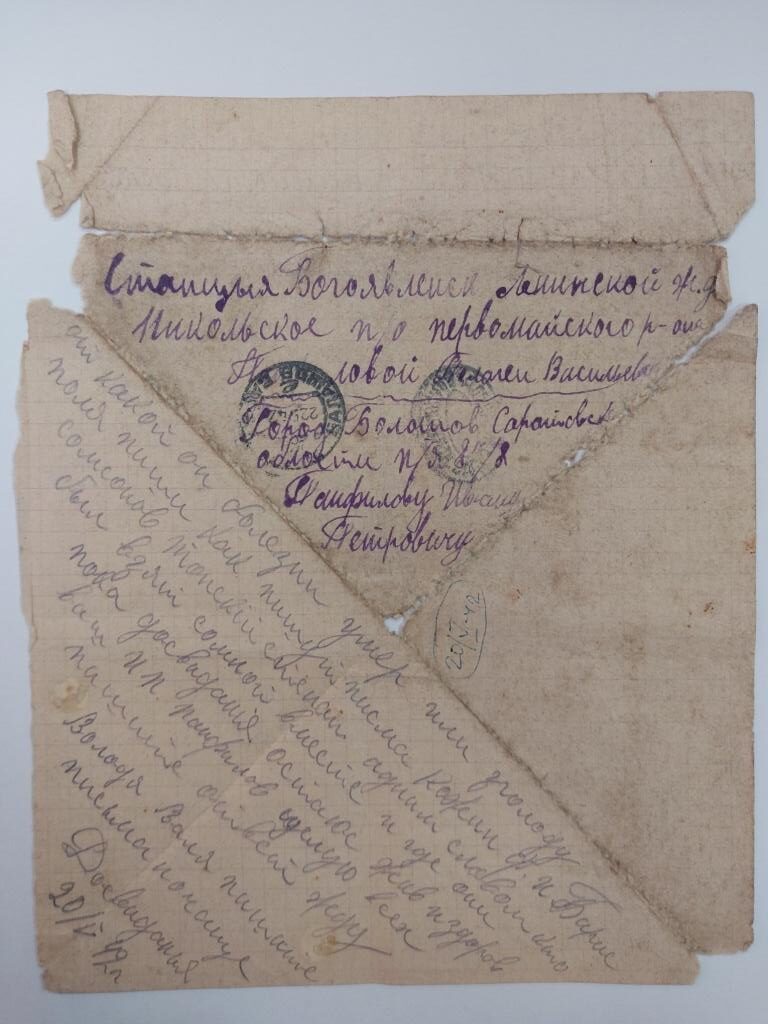 Станцыя Богоявленск Ленинской ж.д
Никольское п/о первомайского р-она
ловой Пелагеи Васильевн
Город Болашов Саратовск
области п/я 8/8
Панфилову Ивану
Петровичу
20/V-42
от какой он болезни умер или зголоду
поля пиши как пишут писма кожин Ф И Барие
сомсонов тонский степан адним словом кто
был взят сомной вместе и где они
пока досвиданья остаюс жив издоров
ваш И П. панфилов целую всех
пишите ответ жду
Володя Валя пишите
письма почаще
Досвиданья
20/V 42г